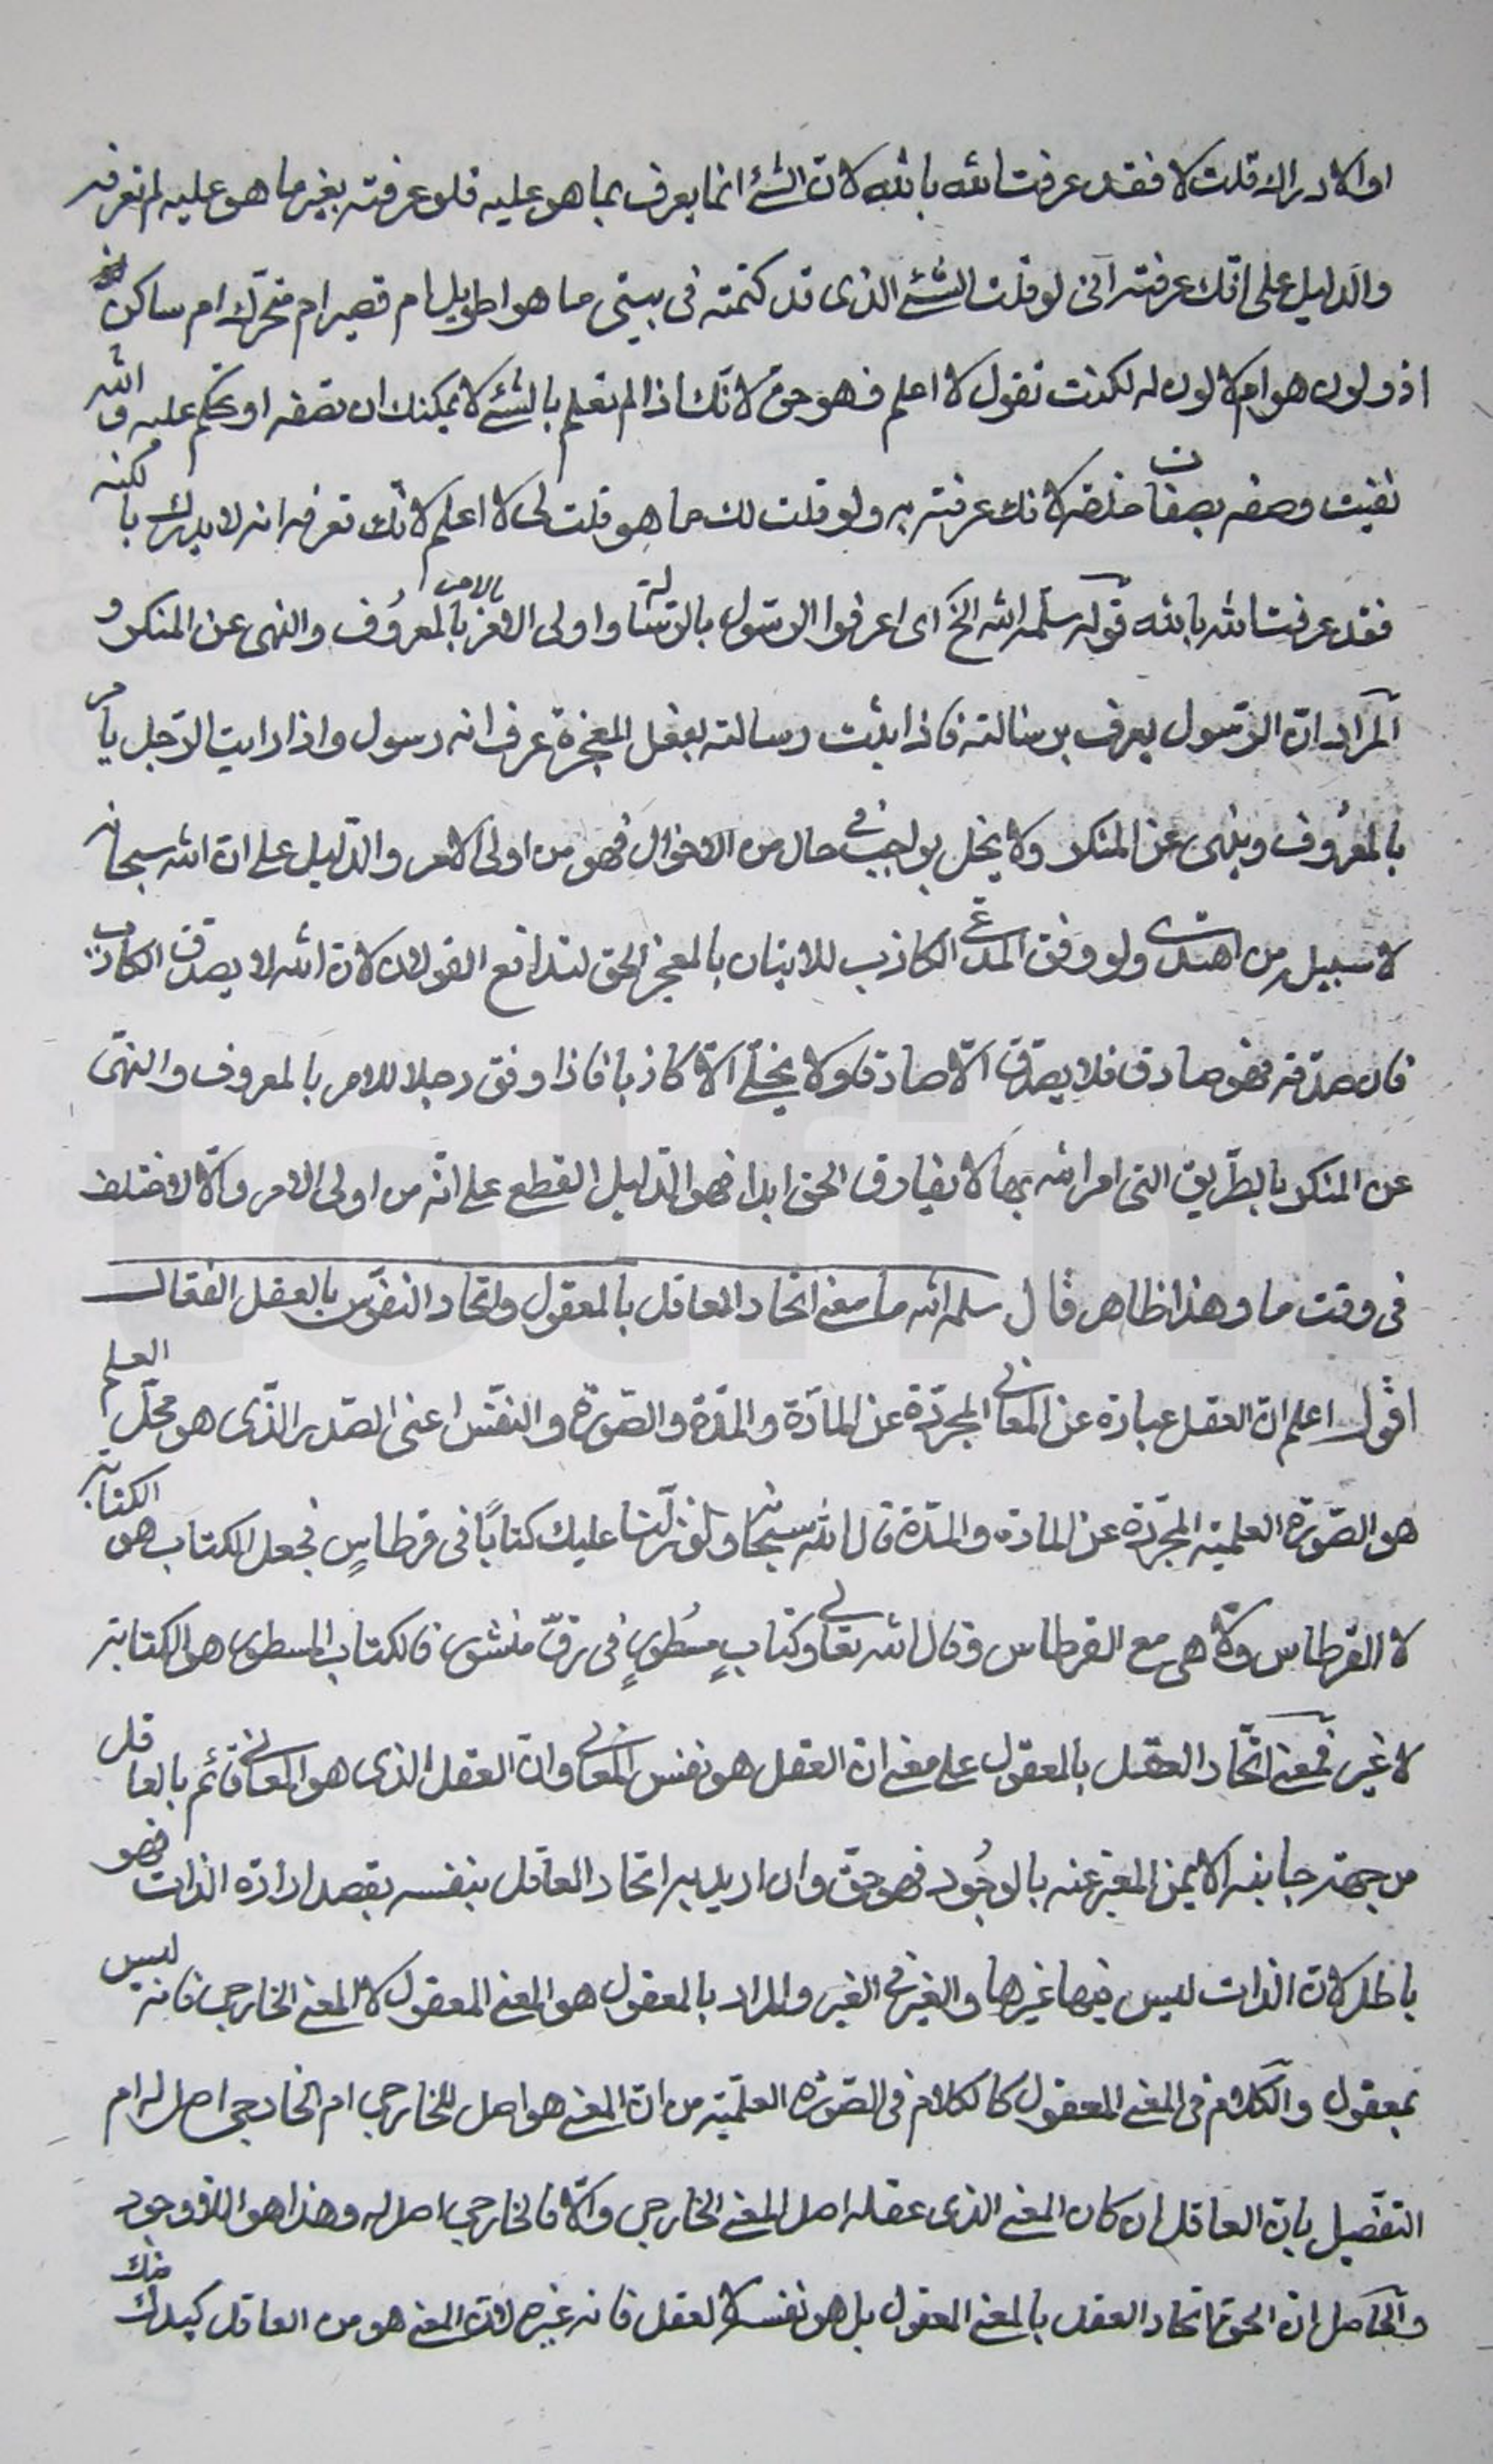 او الادراك قلت لا فقد عرفت الله بالله لان الشئ انما يعرف بما هو عليه فلو عرفته بغير ما هو عليه لم تعرفه
والدليل على انك عرفته انى لو قلت الشئ الذى قد كتمته فى بيتى ما هو اطويل ام قصير ام متحرك ام ساكن
اذو لون هو ام لا لون له لكنت تقول لا اعلم فهو حق لانك اذا لم تعلم بالشئ لا يمكنك ان تصفه او تحكم عليه والله
نفيت وصفه بصفات خلقه لانك عرفته به ولو قلت لك ما هو قلت لى لا اعلم لانك تعرفه انه لا يدرك بالكنه
فقد عرفت الله بالله قوله سلمه الله الخ اى اعرفوا الرسول بالرسالة واولى الامر بالامر بالمعروف والنهى عن المنكر و
المراد ان الرسول يعرف برسالته فاذا ثبت رسالته بفعل المعجزة عرف انه رسول واذا رايت الرجل يأمر
بالمعروف وينهى عن المنكر ولا يخل بواجب فى حال من الاحوال فهو من اولى الامر والدليل على ان الله سبحانه
لا سبيل من اهتدى ولو وفق المدعى الكاذب للاتيان بالمعجز الحق لتدافع القولان لان الله لا يصدق الكاذب
فان صدقه فهو صادق فلا يصدق الا صادقا ولا يخلى الا كاذبا فاذا وفق رجلا للامر بالمعروف والنهى
عن المنكر بالطريق التى امر الله بها لا يفارق الحق ابدا فهو الدليل القطع على انه من اولى الامر والا لاختلف
فى وقت ما وهذا ظاهر قال سلمه الله ما معنى اتحاد العاقل بالمعقول واتحاد النفوس بالعقل الفعال
اقول اعلم ان العقل عبارة عن المعانى المجردة عن المادة والمدة والصورة والنفس اعنى الصدر الذى هو محل العلم
هو الصورة العلمية المجردة عن المادة والمدة قال الله سبحانه ولو نزلنا عليك كتابًا فى قرطاسٍ فجعل الكتاب هو الكتابة
لا القرطاس ولا هى مع القرطاس وقال الله تعالى وكتابٍ مسُطورٍ فى رقّ منشور فالكتاب المسطور هو الكتابة
لا غير فمعنى اتحاد العقل بالمعقول على معنى ان العقل هو نفس المعانى وان العقل الذى هو المعانى قائم بالعاقل
من جهة جانبه الايمن المعبر عنه بالوجُود فهو حق وان اريد به اتحاد العاقل بنفسه بقصد ارادة الذات فهو
باطل لان الذات ليس فيها غيرها والغير فى الغير والمراد بالمعقول هو المعنى المعقول لا المعنى الخارجى فانه ليس
بمعقول والكلام فى المعنى المعقول كالكلام فى الصورة العلمية من ان المعنى هو اصل للخارجى ام الخارجى اصل له ام
التفصيل بان العاقل ان كان المعنى الذى عقله اصل المعنى الخارجى والا فالخارجى اصل له وهذا هو
والحاصل ان الحق اتحاد العقل بالمعنى المعقول بل هو نفسه لا لعقل فانه غيره لان المعنى هو من العاقل كيدك منك